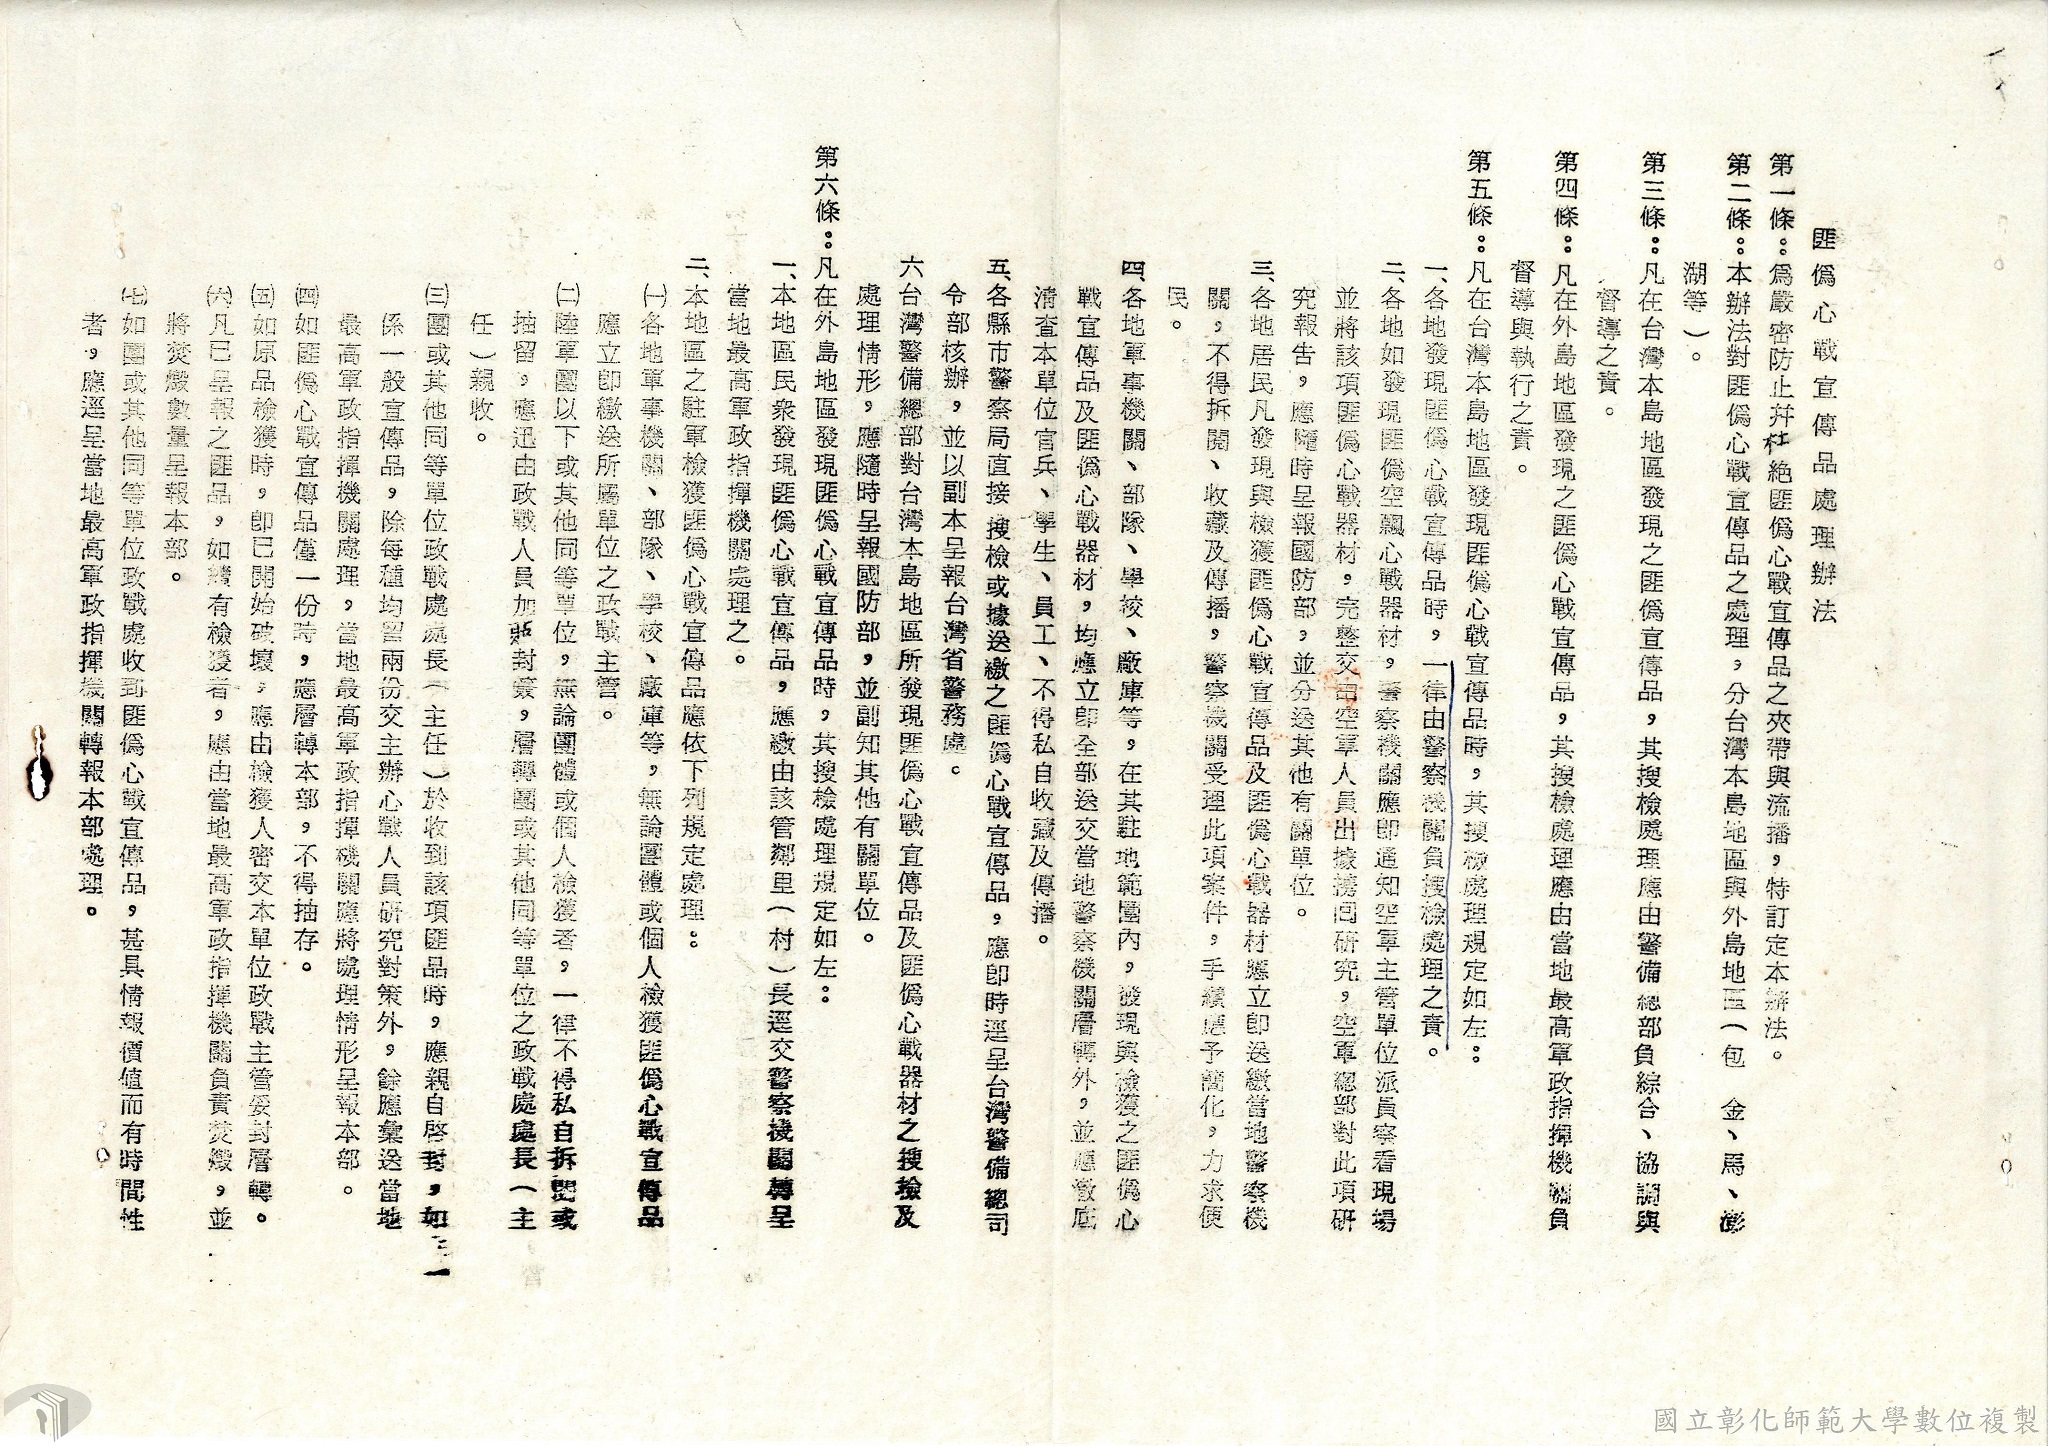 匪偽心戰宣傳品處理辦法
第一條：為嚴密防止幷杜絕匪偽心戰宣傳品之夾帶與流播，特訂定本辦法。
第二條：本辦法對匪偽心戰宣傳品之處理，分台灣本島地區與外島地區（包　金、馬、澎
湖等）。
第三條：凡在台灣本島地區發現之匪偽宣傳品，其搜檢處理應由警備總部負綜合、協調與
督導之責。
第四條：凡在外島地區發現之匪偽心戰宣傳品，其搜檢處理應由當地最高軍政指揮機關負
督導與執行之責。
第五條：凡在台灣本島地區發現匪偽心戰宣傳品時，其搜檢處理規定如左：
一、各地發現匪偽心戰宣傳品時，一律由警察機關負搜檢處理之責。
二、各地如發現匪偽空飄心戰器材，警察機關應即通知空軍主管單位派員察看現場
並將該項匪偽心戰器材，完整交由空軍人員出據攜回研究，空軍總部對此項研
究報告，應隨時呈報國防部，並分送其他有關單位。
三、各地居民凡發現與檢獲匪偽心戰宣傳品及匪偽心戰器材應立即送繳當地警察機
關，不得拆閱、收藏及傳播，警察機關受理此項案件，手續應予簡化，力求便
民。
四、各地軍事機關、部隊、學校、廠庫等，在其駐地範圍內，發現與檢獲之匪偽心
戰宣傳品及匪偽心戰器材，均應立即全部送交當地警察機關層轉外，並應澈底
清查本單位官兵、學生、員工、不得私自收藏及傳播。
五、各縣市警察局直接搜檢或據送繳之匪偽心戰宣傳品，應即時逕呈台灣警備總司
令部核辦，並以副本呈報台灣省警務處。
六台灣警備總部對台灣本島地區所發現匪偽心戰宣傳品及匪偽心戰器材之搜檢及
處理情形，應隨時呈報國防部，並副知其他有關單位。
第六條：凡在外島地區發現匪偽心戰宣傳品時，其搜檢處理規定如左：
一、本地區民衆發現匪偽心戰宣傳品，應繳由該管鄰里（村）長逕交警察機關轉呈
當地最高軍政指揮機關處理之。
二、本地區之駐軍檢獲匪偽心戰宣傳品應依下列規定處理：
㈠各地軍事機關、部隊、學校、廠庫等，無論團體或個人檢獲匪偽心戰宣傳品
應立即繳送所屬單位之政戰主管。
㈡陸軍團以下或其他同等單位，無論團體或個人檢獲者，一律不得私自拆閱或
抽留，應迅由政戰人員加貼封簽，層轉團或其他同等單位之政戰處處長（主
任）親收。
㈢團或其他同等單位政戰處處長（主任）於收到該項匪品時，應親自啓封，如
係一般宣傳品，除每種均留兩份交主辦心戰人員研究對策外，餘應彙送當地
最高軍政指揮機關處理，當地最高軍政指揮機關應將處理情形呈報本部。
㈣如匪偽心戰宣傳品僅一份時，應層轉本部，不得抽存。
㈤如原品檢獲時，即已開始破壞，應由檢獲人密交本單位政戰主管妥封層轉。
㈥凡已呈報之匪品，如續有檢獲者，應由當地最高軍政指揮機關負責焚燬，並
將焚燬數量呈報本部。
㈦如團或其他同等單位政戰處收到匪偽心戰宣傳品，甚具情報價值而有時間性
者，應逕呈當地最高軍政指揮機關轉報本部處理。
國立彰化師範大學數位複製